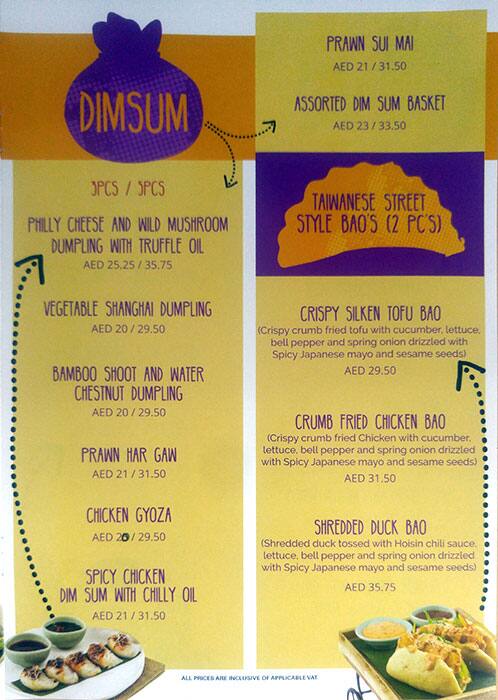 DIMSUM
3PCS / 5PCS
PHILLY CHEESE AND WILD MUSHROOM
DUMPLING WITH TRUFFLE OIL
AED 25.25 / 35.75
VEGETABLE SHANGHAI DUMPLING
AED 20 / 29.50
BAMBOO SHOOT AND WATER
CHESTNUT DUMPLING
AED 20 / 29.50
PRAWN HAR GAW
AED 21 / 31.50
CHICKEN GYOZA
AED 20 / 29.50
SPICY CHICKEN
DIM SUM WITH CHILLY OIL
AED 21 / 31.50
PRAWN SUI MAI
AED 21 / 31.50
ASSORTED DIM SUM BASKET
AED 23 / 33.50
TAIWANESE STREET
STYLE BAO'S (2 PC'S)
CRISPY SILKEN TOFU BAO
(Crispy crumb fried tofu with cucumber, lettuce,
bell pepper and spring onion drizzled with
Spicy Japanese mayo and sesame seeds)
AED 29.50
CRUMB FRIED CHICKEN BAO
(Crispy crumb fried Chicken with cucumber,
lettuce, bell pepper and spring onion drizzled
with Spicy Japanese mayo and sesame seeds)
AED 31.50
SHREDDED DUCK BAO
(Shredded duck tossed with Hoisin chili sauce,
lettuce, bell pepper and spring onion drizzled
with Spicy Japanese mayo and sesame seeds)
AED 35.75
ALL PRICES ARE INCLUSIVE OF APPLICABLE VAT